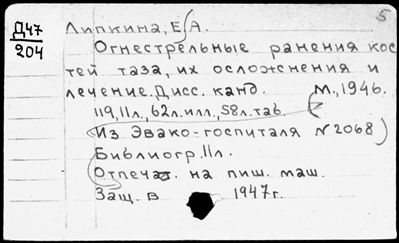 5
Д47
204
Липкина, Е. А.
Огнестрельные ранения кос
тей таза, их осложнения и
лечение. Дисс. канд. М., 1946.
119, 11л., 62л. илл., 58л. таб.
(Из Эвако-госпиталя N 2068)
Библиогр. 11л.
Отпечат. на пиш. маш.
Защ. в 1947г.